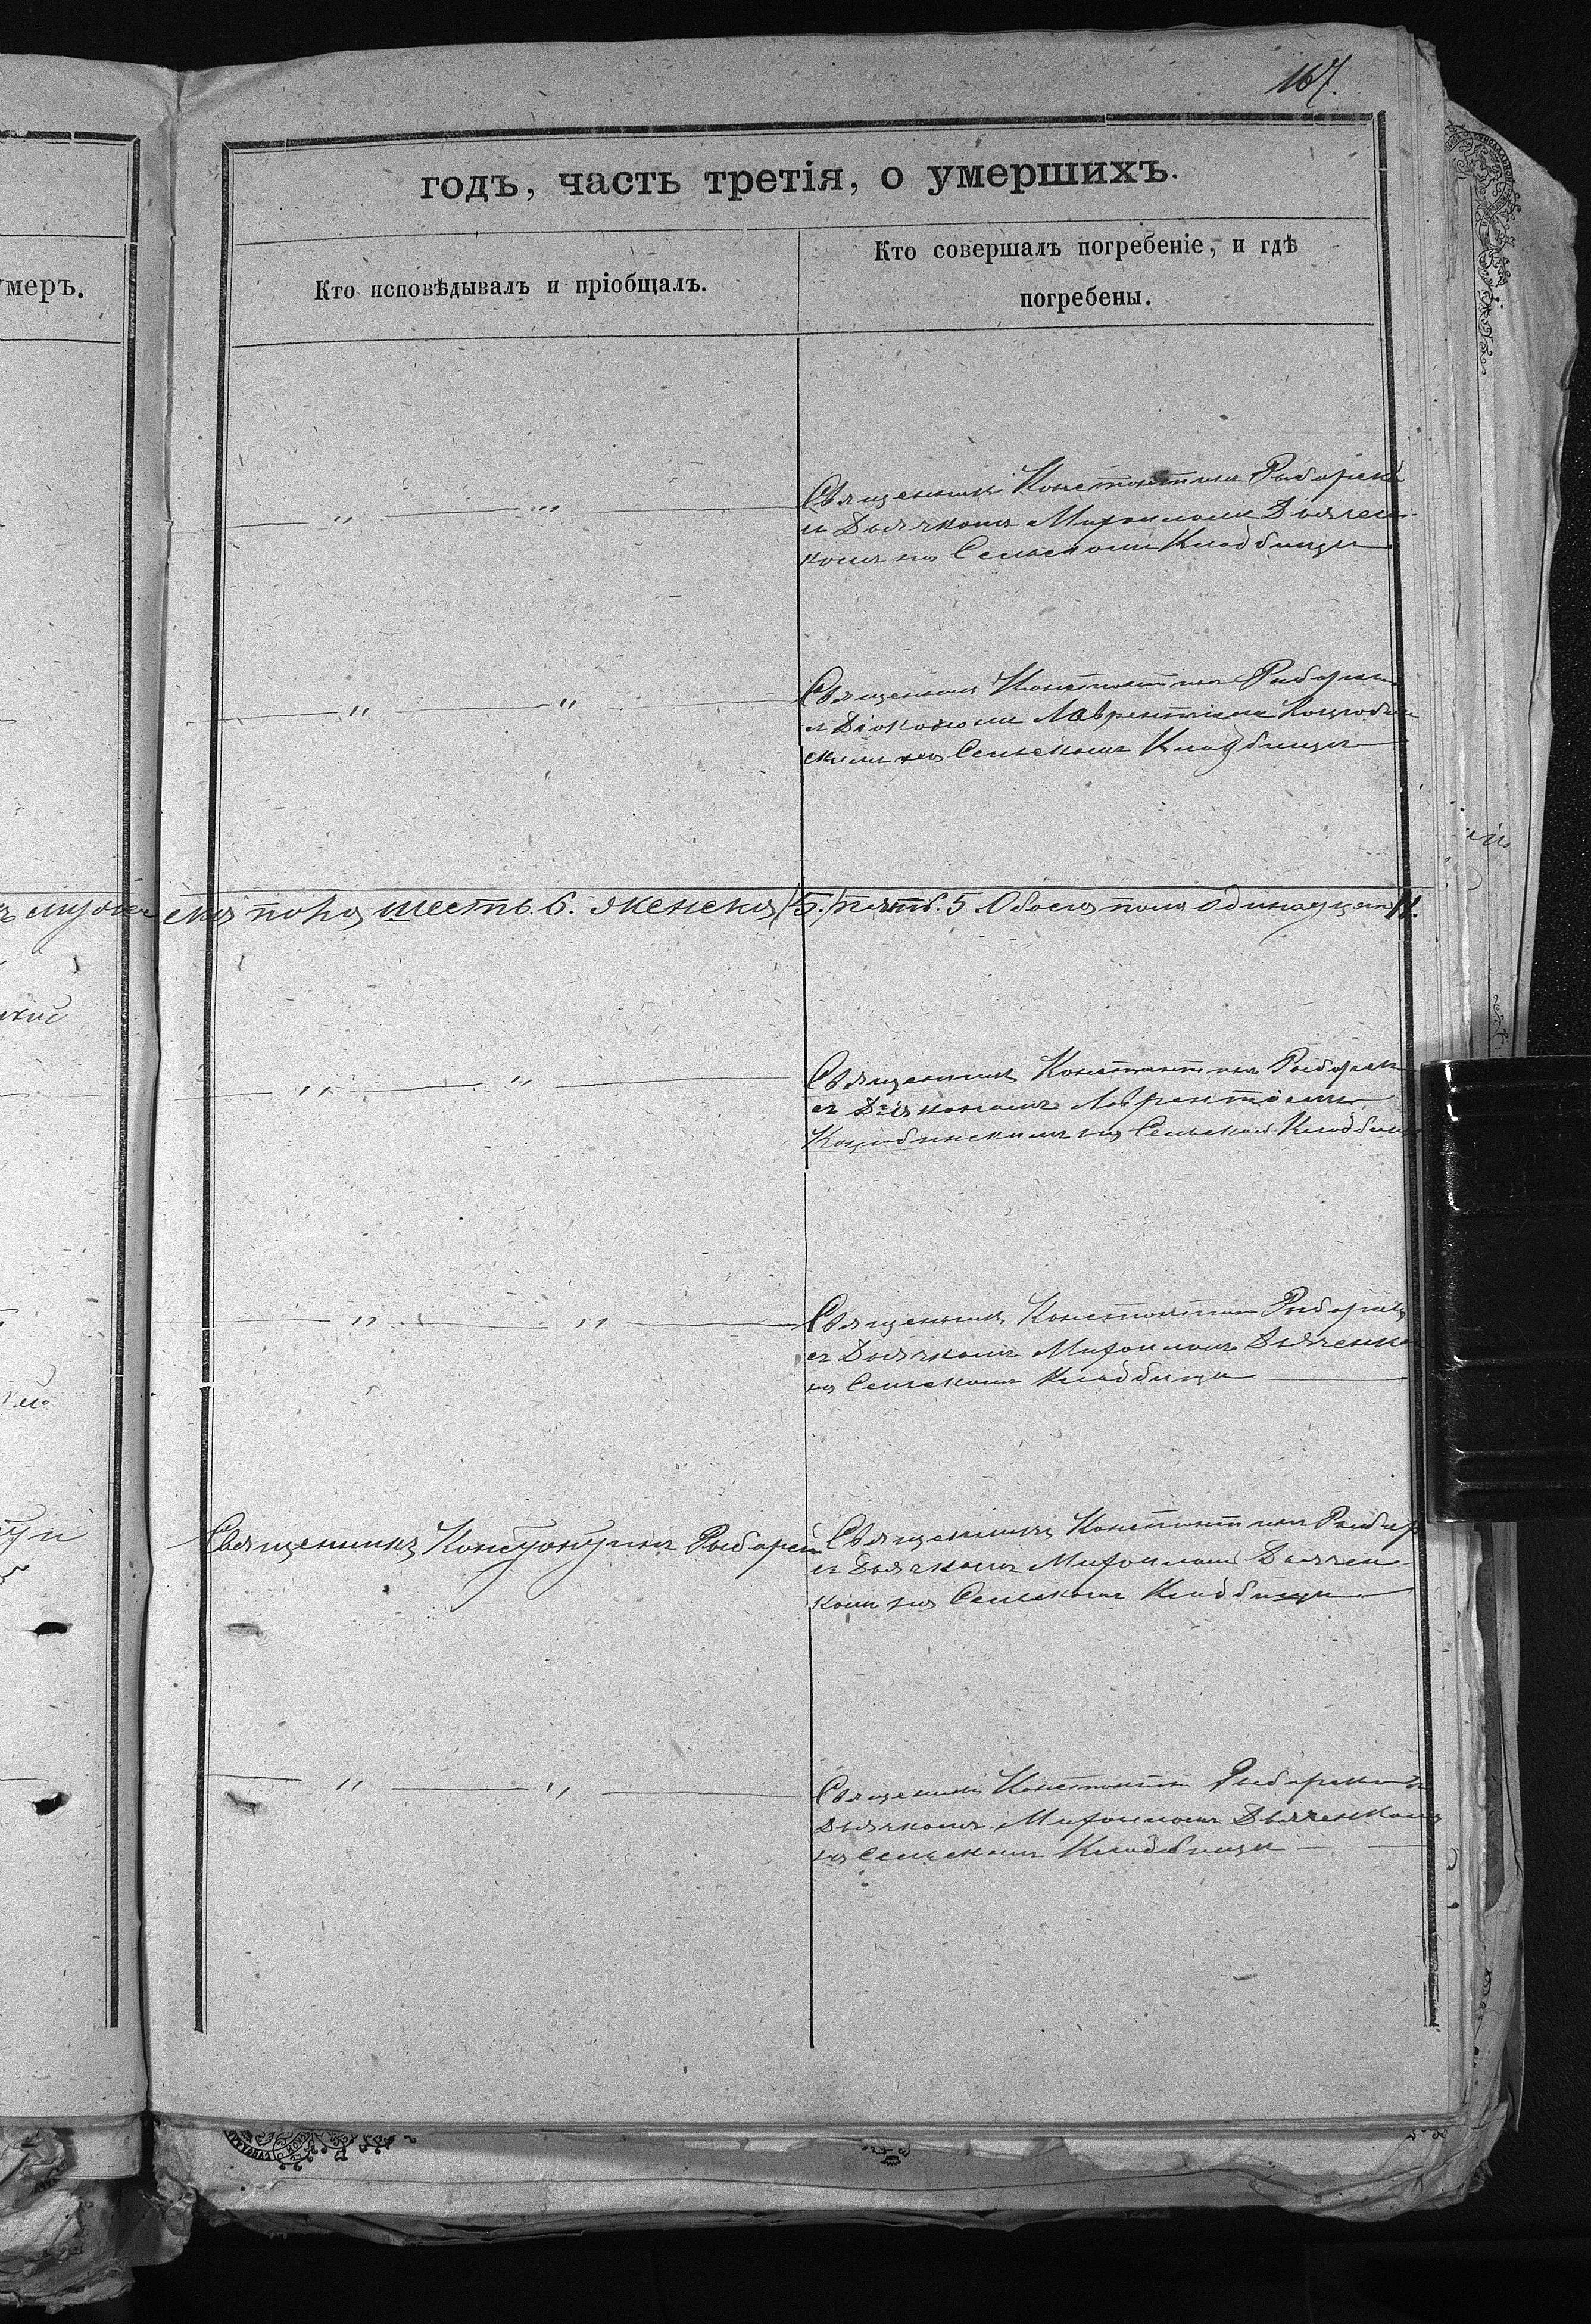 167.
годъ, часть третія, о умершихъ.
умеръ.
Кто исповѣдывалъ и пріобщалъ.
Кто совершалъ погребеніе, и гдѣ
погребены.
Священникъ Константинъ Рыбарскі
съ Дьячкомъ Мирономъ Дьячен-
комъ на Сельскомъ Кладбищи
Священникъ Константинъ Рыбарск
съ Діакономъ Лаврентіемъ Коцюбин
скимъ на Сельскомъ Кладбищи
скаго пола шесть. 6. женска /5./ пять. 5. Обоего пола одинадцать 11.
Священникъ Константинъ Рыбарск
съ Діакономъ Лаврентіемъ
Коцюбинскимъ на Сельском Кладбищ
Священникъ Константинъ Рыбарск
съ Дьячкомъ Мирономъ Дьяченко
на Сельскомъ Кладбищи
Священникъ Константинъ Рыбарскій
Священникъ Константинъ Рыбар
съ Дьячкомъ Мирономъ Дьячен-
комъ на Сельскомъ Кладбищи
Священикъ Константин Рыбарскі съ
Дьячкомъ Мирономъ Дьяченкомъ
на Сельскомъ Кладбищи